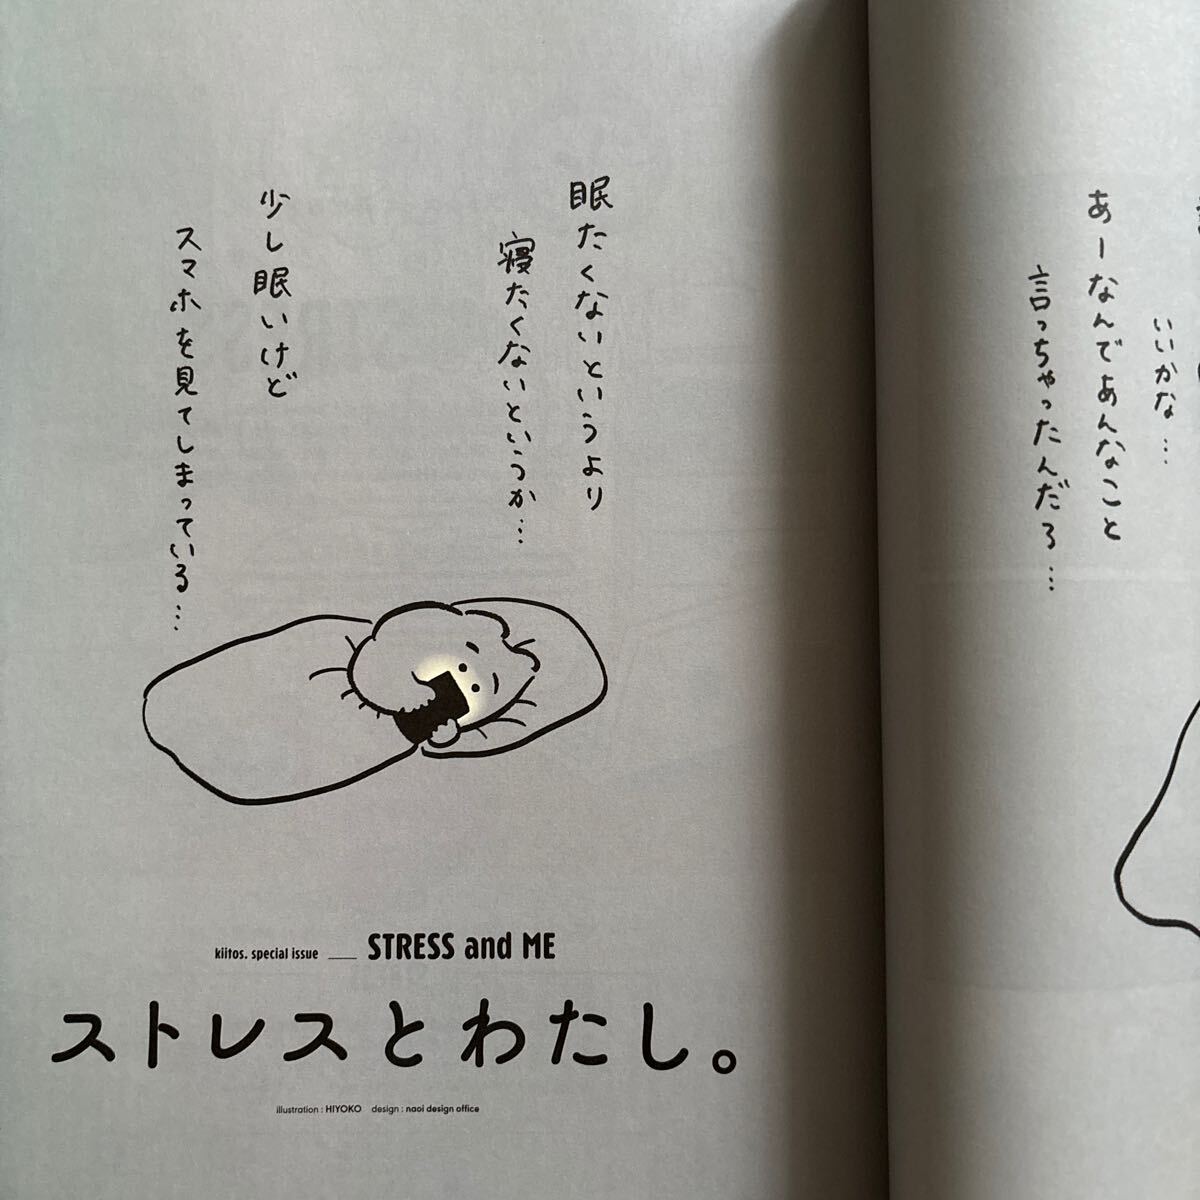 眠たくないというより
寝たくないというか…
少し眠いけど
スマホを見てしまっている…
kiitos. special issue ___ STRESS and ME
ストレスとわたし。
illustration : HIYOKO design : naoi design office
いいかな…
あーなんであんなこと
言っちゃったんだろ…